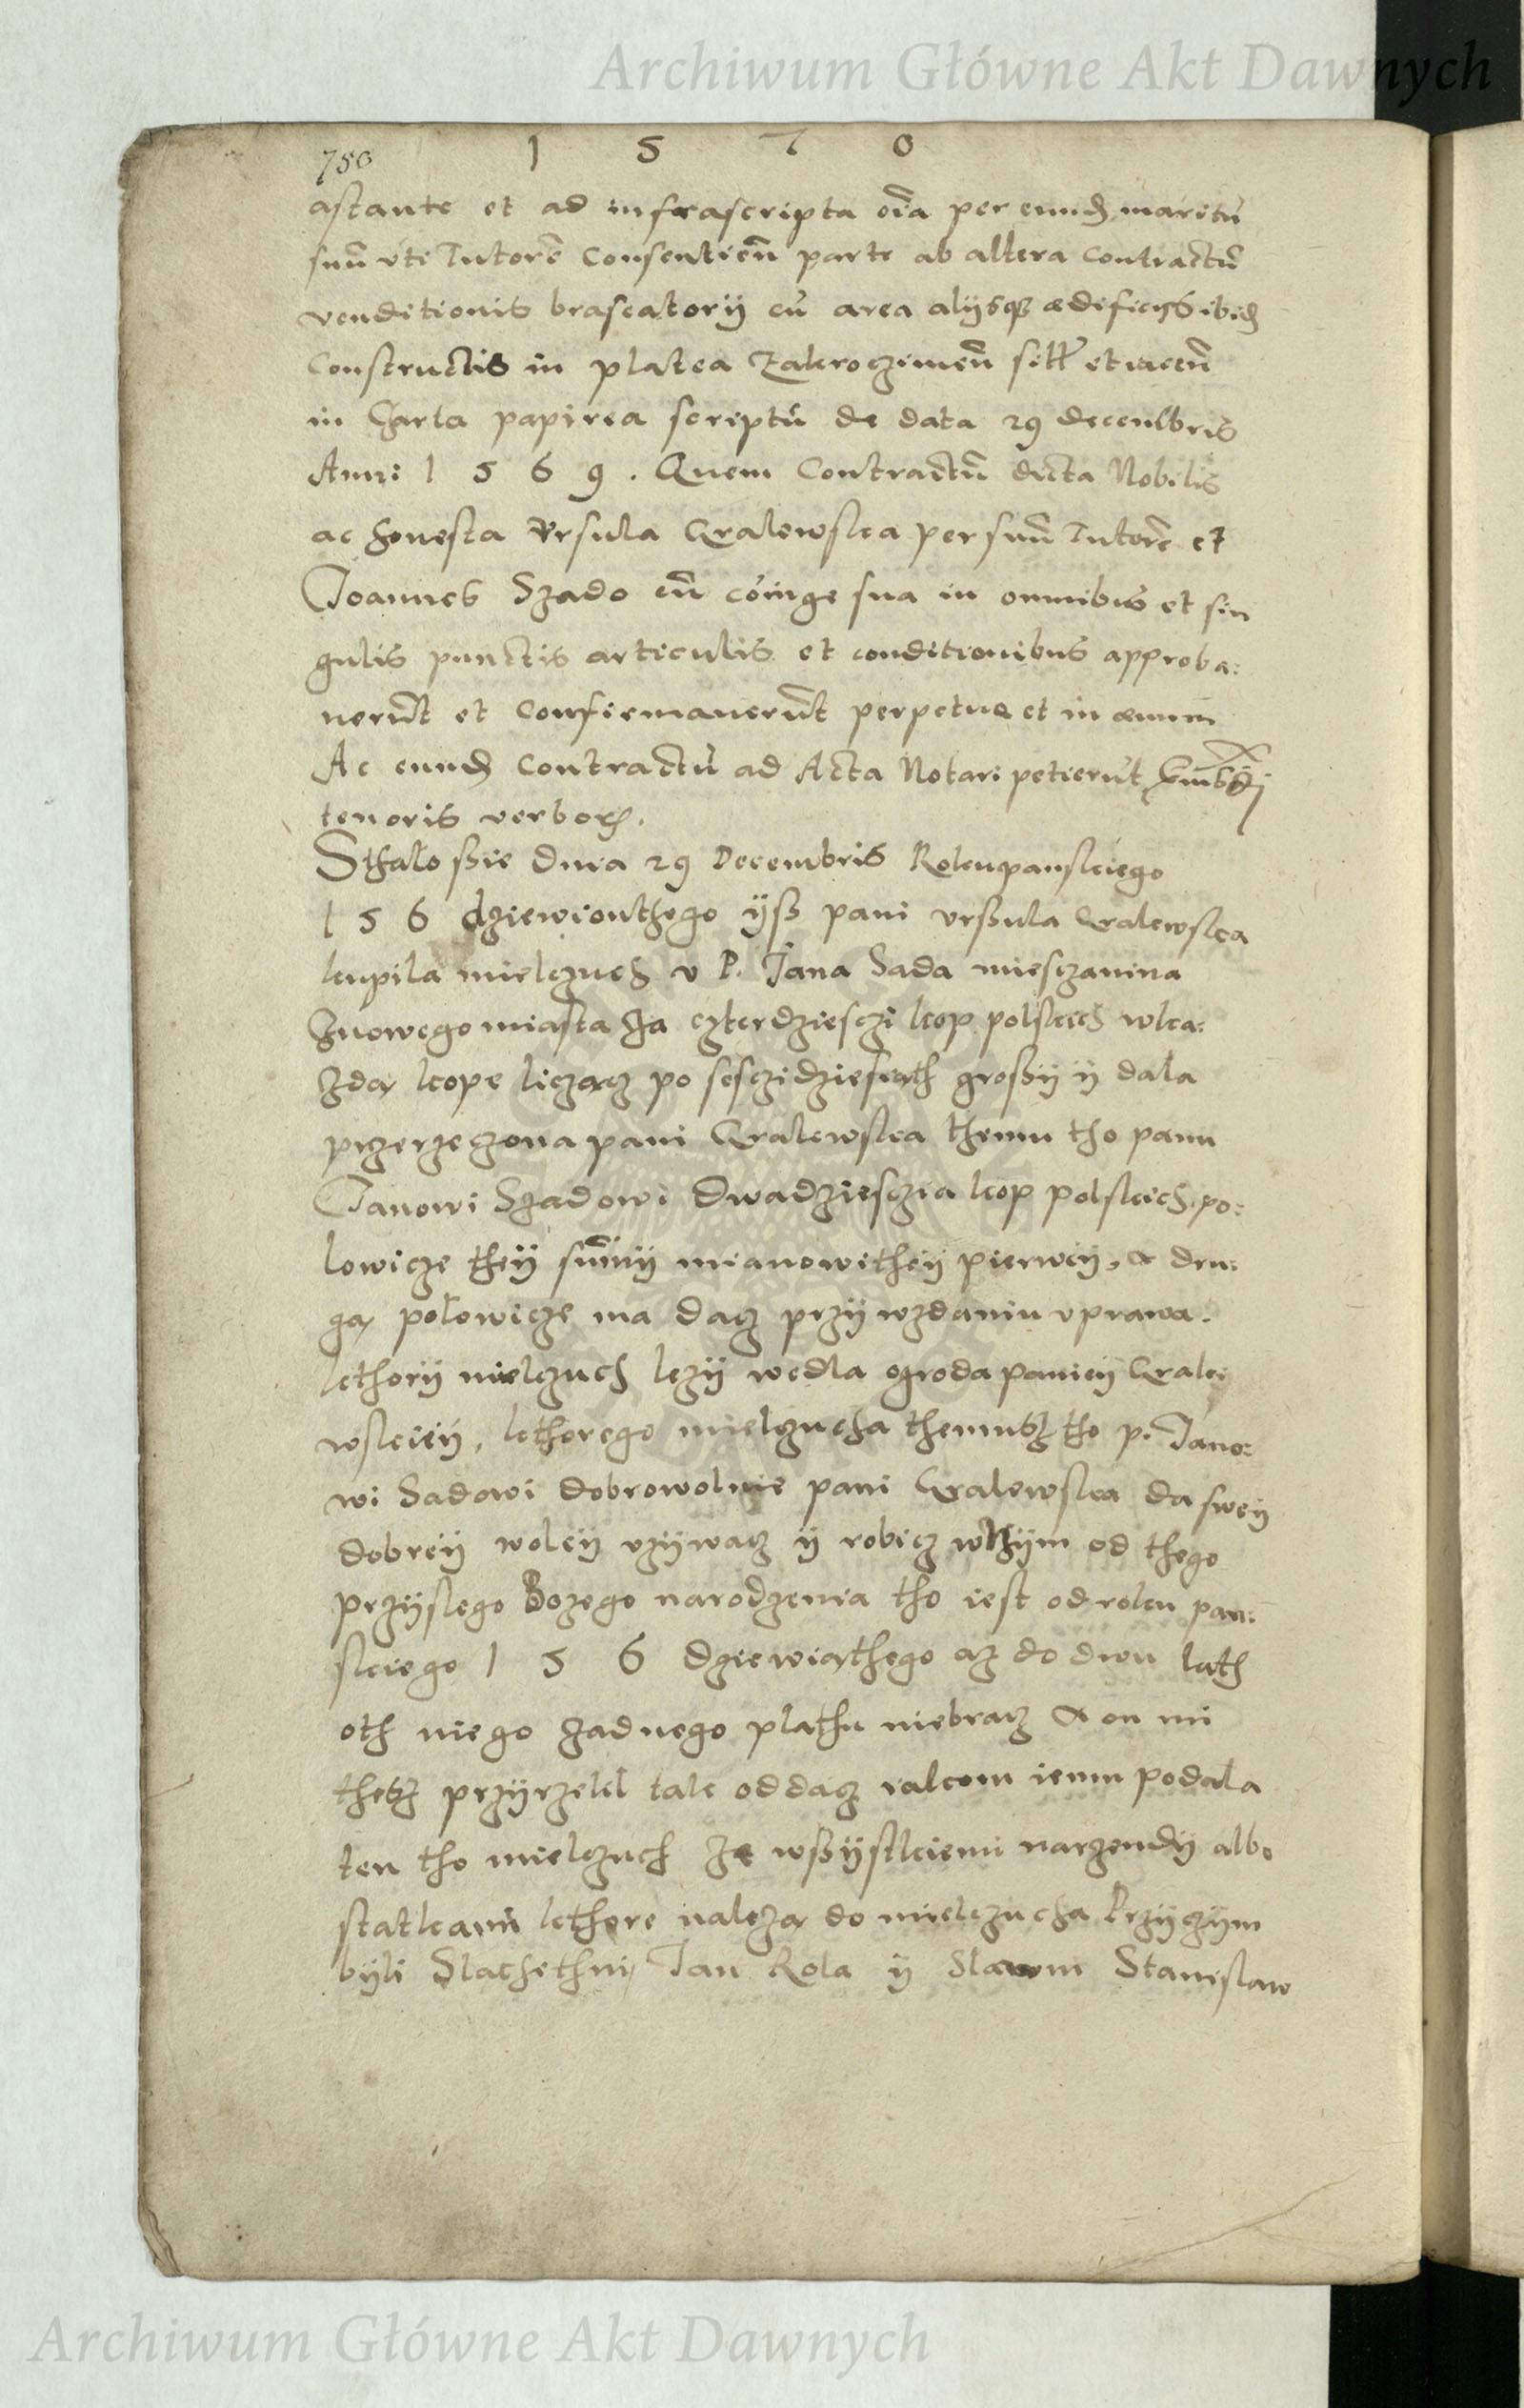 Archiwum Główne Akt Dawnych
750 1 5 7 0
astante et ad infrascripta oı̃a per eund maritũ
suũ vti Tutorẽ Consentieñ parte ab altera Contractũ
venditionis braseatorÿ cũ area alÿsq̃ ædificÿs ibid
Constructis in platea Zakroczimeñ sitt̃ et iaceñ
in Charta papirea scriptũ de data 29 decembris
Anni 1 5 6 9 . Quem Contractũ dicta Nobilis
ac honesta Vrsula Gralewska per suũ Tutorẽ et
Joannes Szado cũ cõiuge sua in omnibus et sin
gulis punctis articulis et conditionibus approba:
uerũt et Confirmauerũt perpetue et in æuum
Ac eund Contractũ ad Acta Notari petierũt
tenoris verbor.
Sthało ßie dnia 29 Decembris Roku panskiego
1 5 6 dziewionthego ÿß pani vrßula Gralewska
kupila mielczuch v P. Jana Sada miesczanina
Znowego miasta Za czterdziesczi kop polskich wka:
Zdą kope licząc po sesczidziesiąth großÿ ÿ dala
przerzeczona pani Gralewska themu tho panu
Janowi Szadowi Dwadziesczia kop polskich po:
lowicze theÿ sum̃ÿ mianowitheÿ pierweÿ, a dru:
gą połowicze ma dacz przÿ wzdaniu v prawa.
kthorÿ mielczuch lezÿ wedla ogroda panieÿ Grale:
wskieÿ, kthorego mielczucha themusz tho p. Jano:
wi Sadowi dobrowolnie pani Gralewska da sweÿ
dobreÿ woleÿ vzÿwacz ÿ robicz w Nÿm od thego
przÿslego Bozego narodzenia tho iest od roku pan:
skiego 1 5 6 dziewiąthego az do dwu lath
oth niego zadnego plathu niebracz A on mi
thesz przÿrzekl tak oddacz iakom iemu podala
ten tho mielczuch ze wßÿstkiemi narzendÿ albo
statkami kthore naleza do mielczucha Przÿczÿm
bÿli Slachethni Jan Rola ÿ Slawni Stanislaw
Archiwum Główne Akt Dawnych